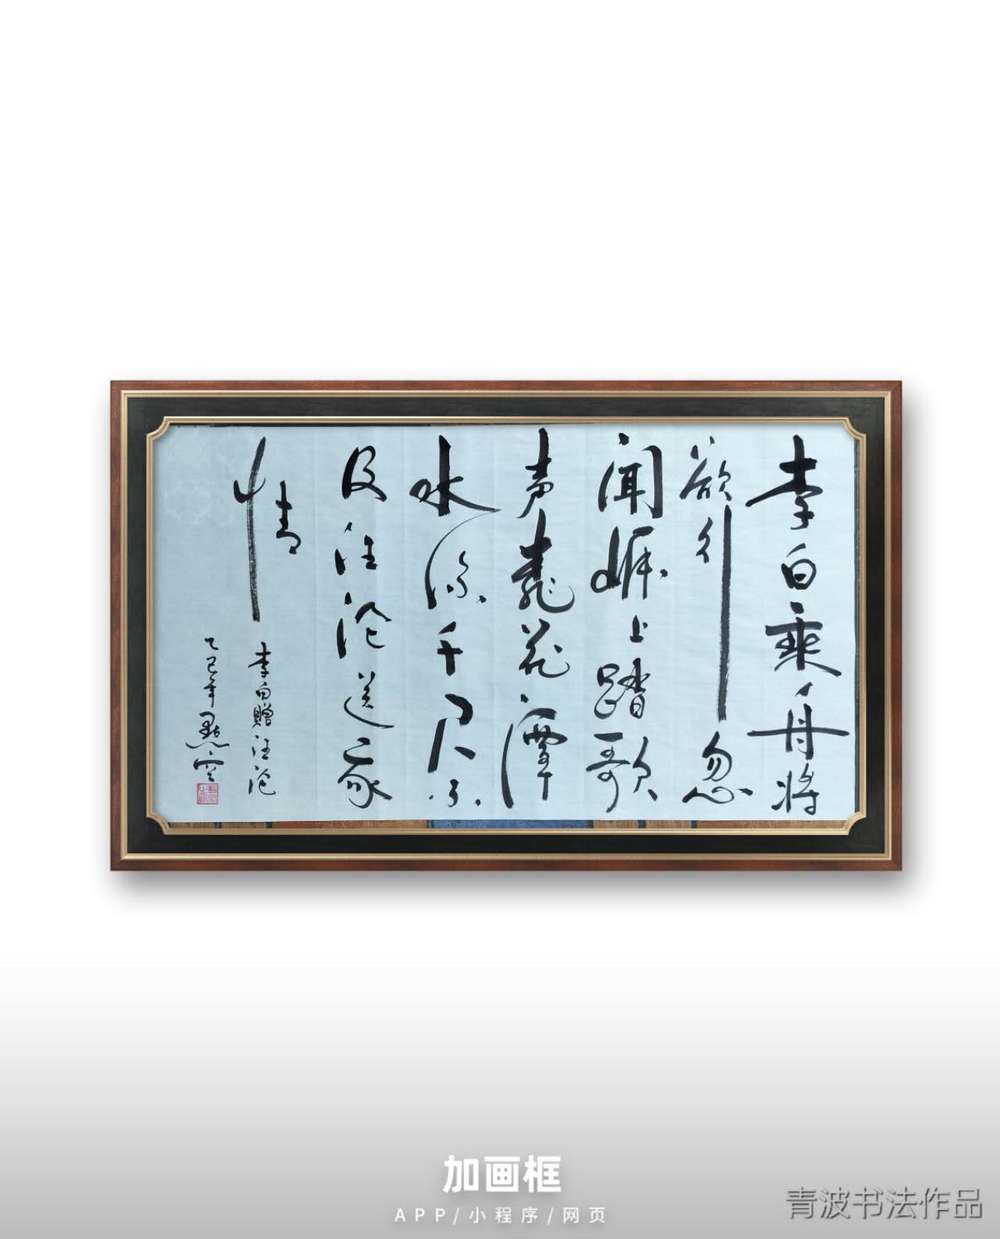 李白乘舟将
欲行忽
闻岸上踏歌
声桃花潭
水深千尺不
及汪沦送我
情
李白赠汪沦
乙巳年
加画框
APP/小程序/网页
青波书法作品